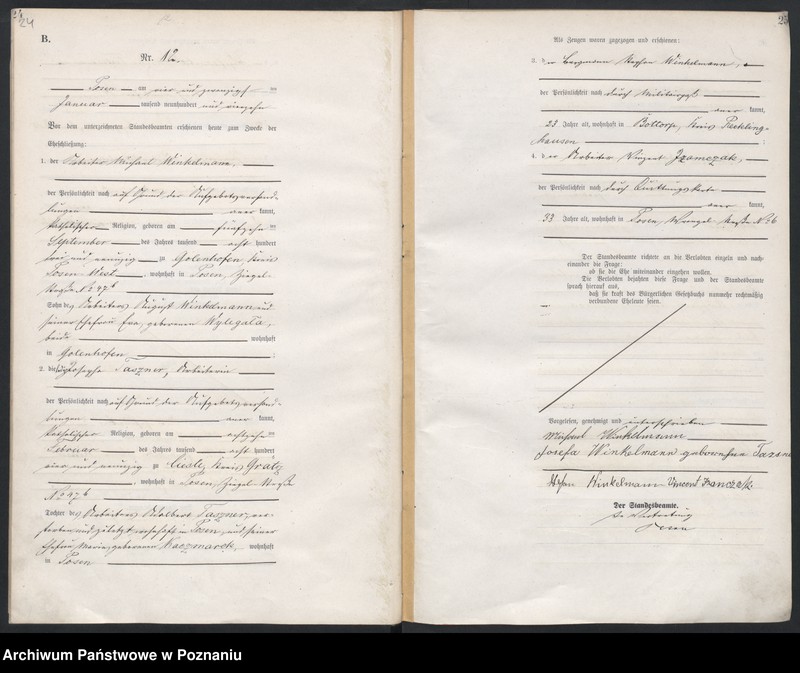 24
B.
Nr. 12.
Posen am vier und zwanzigsten
Januar tausend neunhundert und vierzehn
Vor dem unterzeichneten Standesbeamten erschienen heute zum Zwecke der
Eheschließung:
1. der Arbeiter Michael Winkelmann,
der Persönlichkeit nach auf Grund der Aufgebotsverhand-
lungen aner kannt,
katholischer Religion, geboren am fünfzehnten
September des Jahres tausend acht hundert
drei und neunzig zu Golenhofen, Kreis
Posen West, wohnhaft in Posen, Ziegel-
straße No 
Sohn des Arbeiters August Winkelmann und
seiner Ehefrau Eva, geborenen Wyligala,
beide wohnhaft
in Golenhofen ;
2. die Josepha Taszner, Arbeiterin
der Persönlichkeit nach auf Grund der Aufgebotsverhand-
lungen aner kannt,
katholischer Religion, geboren am achtzehnten
Februar des Jahres tausend acht hundert
vier und neunzig zu Kreis Grätz
, wohnhaft in Posen, Ziegel-straße
No
Tochter des Arbeiters Adalbert Taszner, ver-
storben und zuletzt wohnhaft in Posen, und seiner
Ehefrau Maria, geborenen Kaczmarek, wohnhaft
in Posen
25
Als Zeugen waren zugezogen und erschienen:
3. der Bergmann Stephan Winkelmann,
der Persönlichkeit nach durch Militärpaß
aner kannt,
23 Jahre alt, wohnhaft in Bottrop, Kreis Reckling-
hausen ;
4. der Arbeiter Vinzent
der Persönlichkeit nach durch Quittungskarte
aner kannt,
33 Jahre alt, wohnhaft in Posen, straße No 26
Der Standesbeamte richtete an die Verlobten einzeln und nach-
einander die Frage:
ob sie die Ehe miteinander eingehen wollen.
Die Verlobten bejahten diese Frage und der Standesbeamte
sprach hierauf aus,
daß sie kraft des Bürgerlichen Gesetzbuchs nunmehr rechtmäßig
verbundene Eheleute seien.
Vorgelesen, genehmigt und unterschrieben
Michael Winkelmann
Josefa Winkelmann geborene
Stefan Winkelmann Vincent
Der Standesbeamte.
In Vertretung
Archiwum Państwowe w Poznaniu